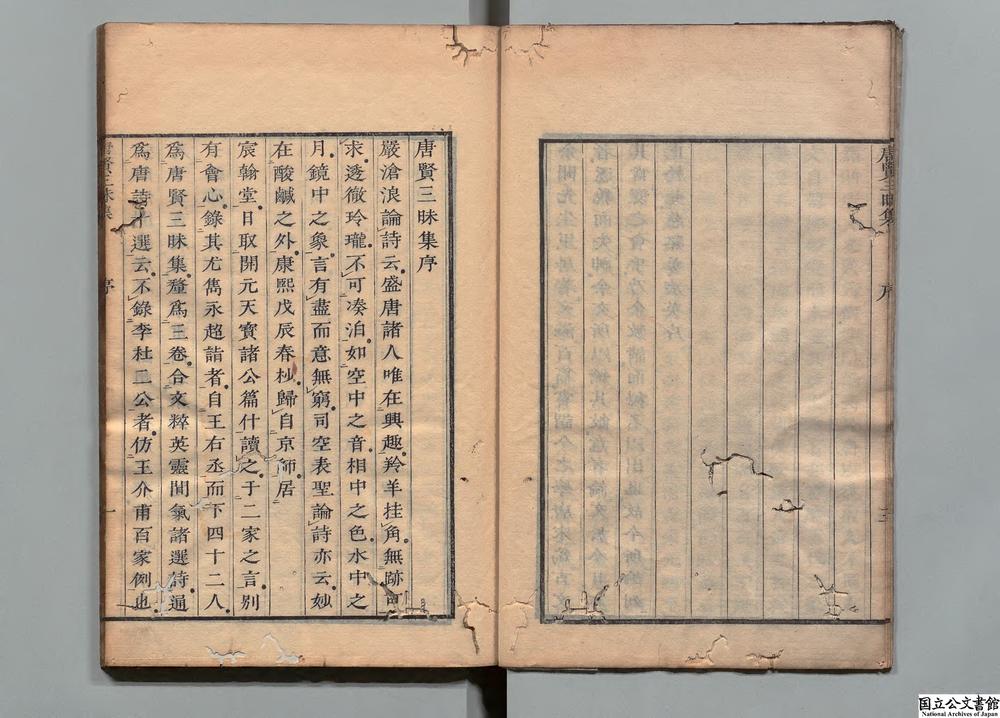 唐賢三昧集
序
三
唐賢三昧集序
嚴滄浪論詩云盛唐諸人唯在興趣羚羊挂角無跡可
求透徹玲瓏不可凑泊如空中之音相中之色水中之
月鏡中之象言有盡而意無窮司空表聖論詩亦云妙
在酸鹹之外康熙戊辰春杪歸自京師居
宸翰堂日取開元天寶諸公篇什讀之于二家之言別
有會心錄其尤雋永超詣者自王右丞而下四十二人
爲唐賢三昧集釐爲三卷合文粹英靈間氣諸選詩通
爲唐詩十選云不錄李杜二公者仿王介甫百家例也
唐賢三昧集
序
一
国立公文書館
National Archives of Japan